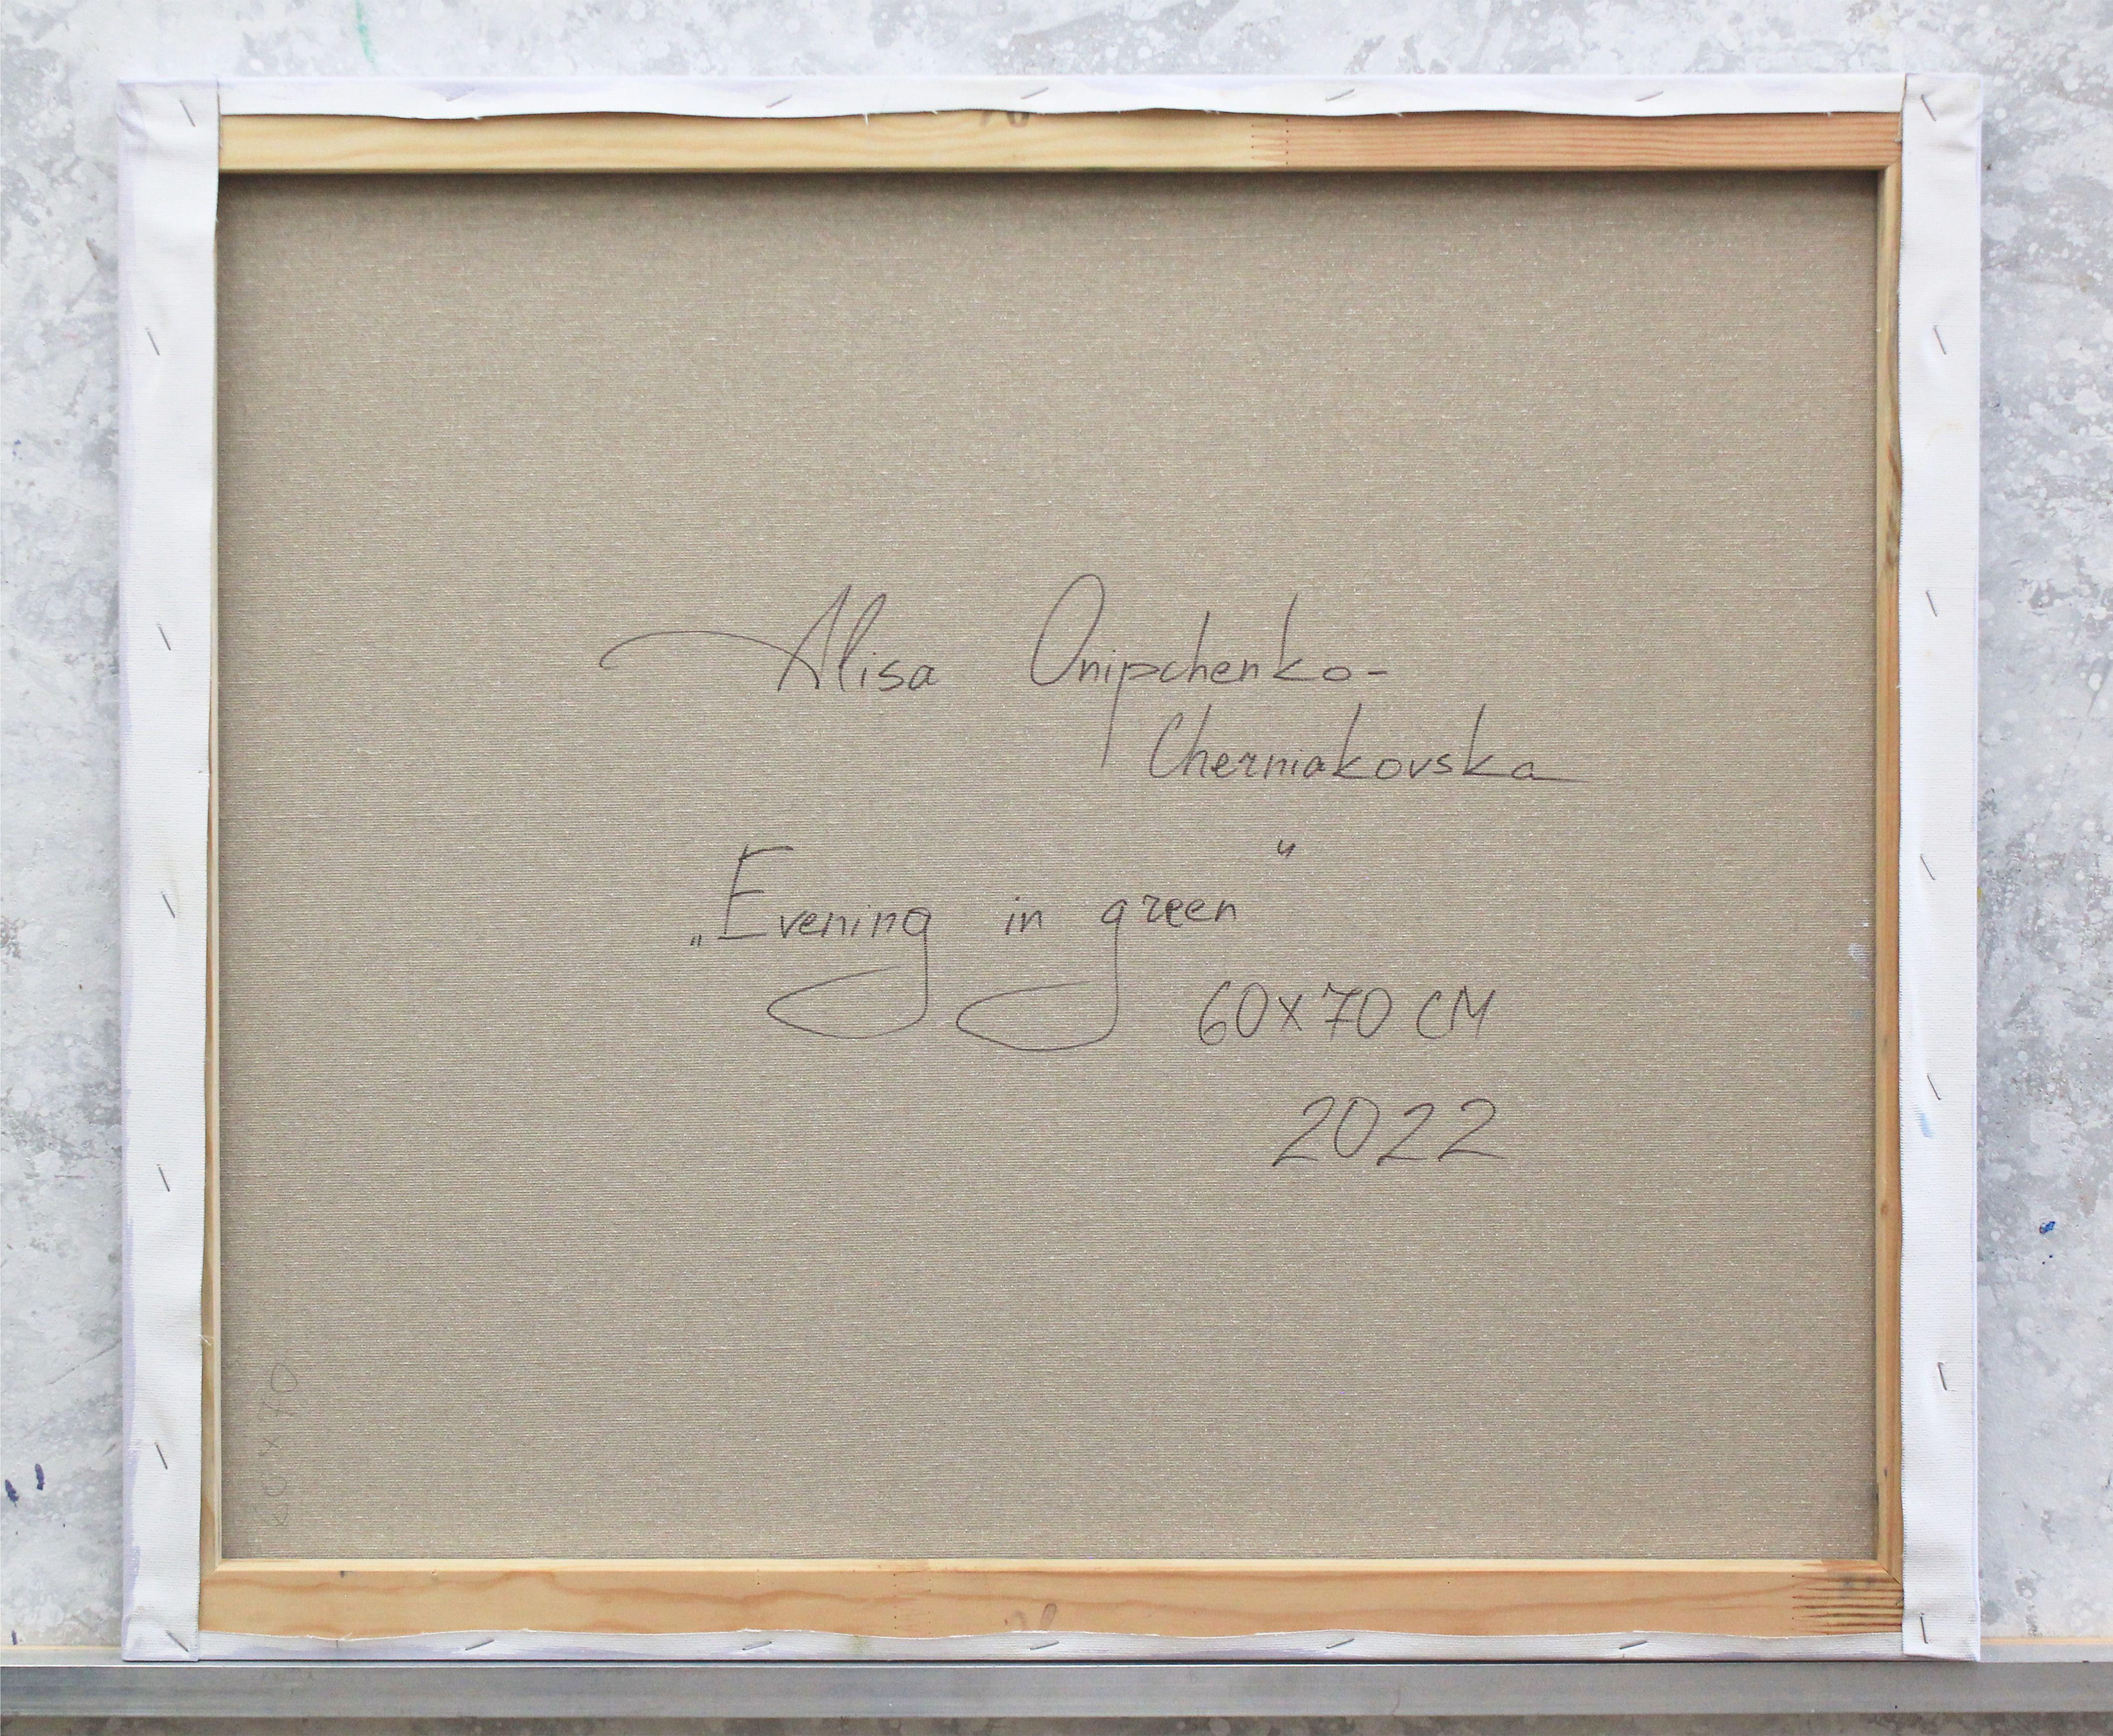 Alisa Onipchenko-
Cherniakovska
„Evening in green“
60x70 CM
2022
60x70